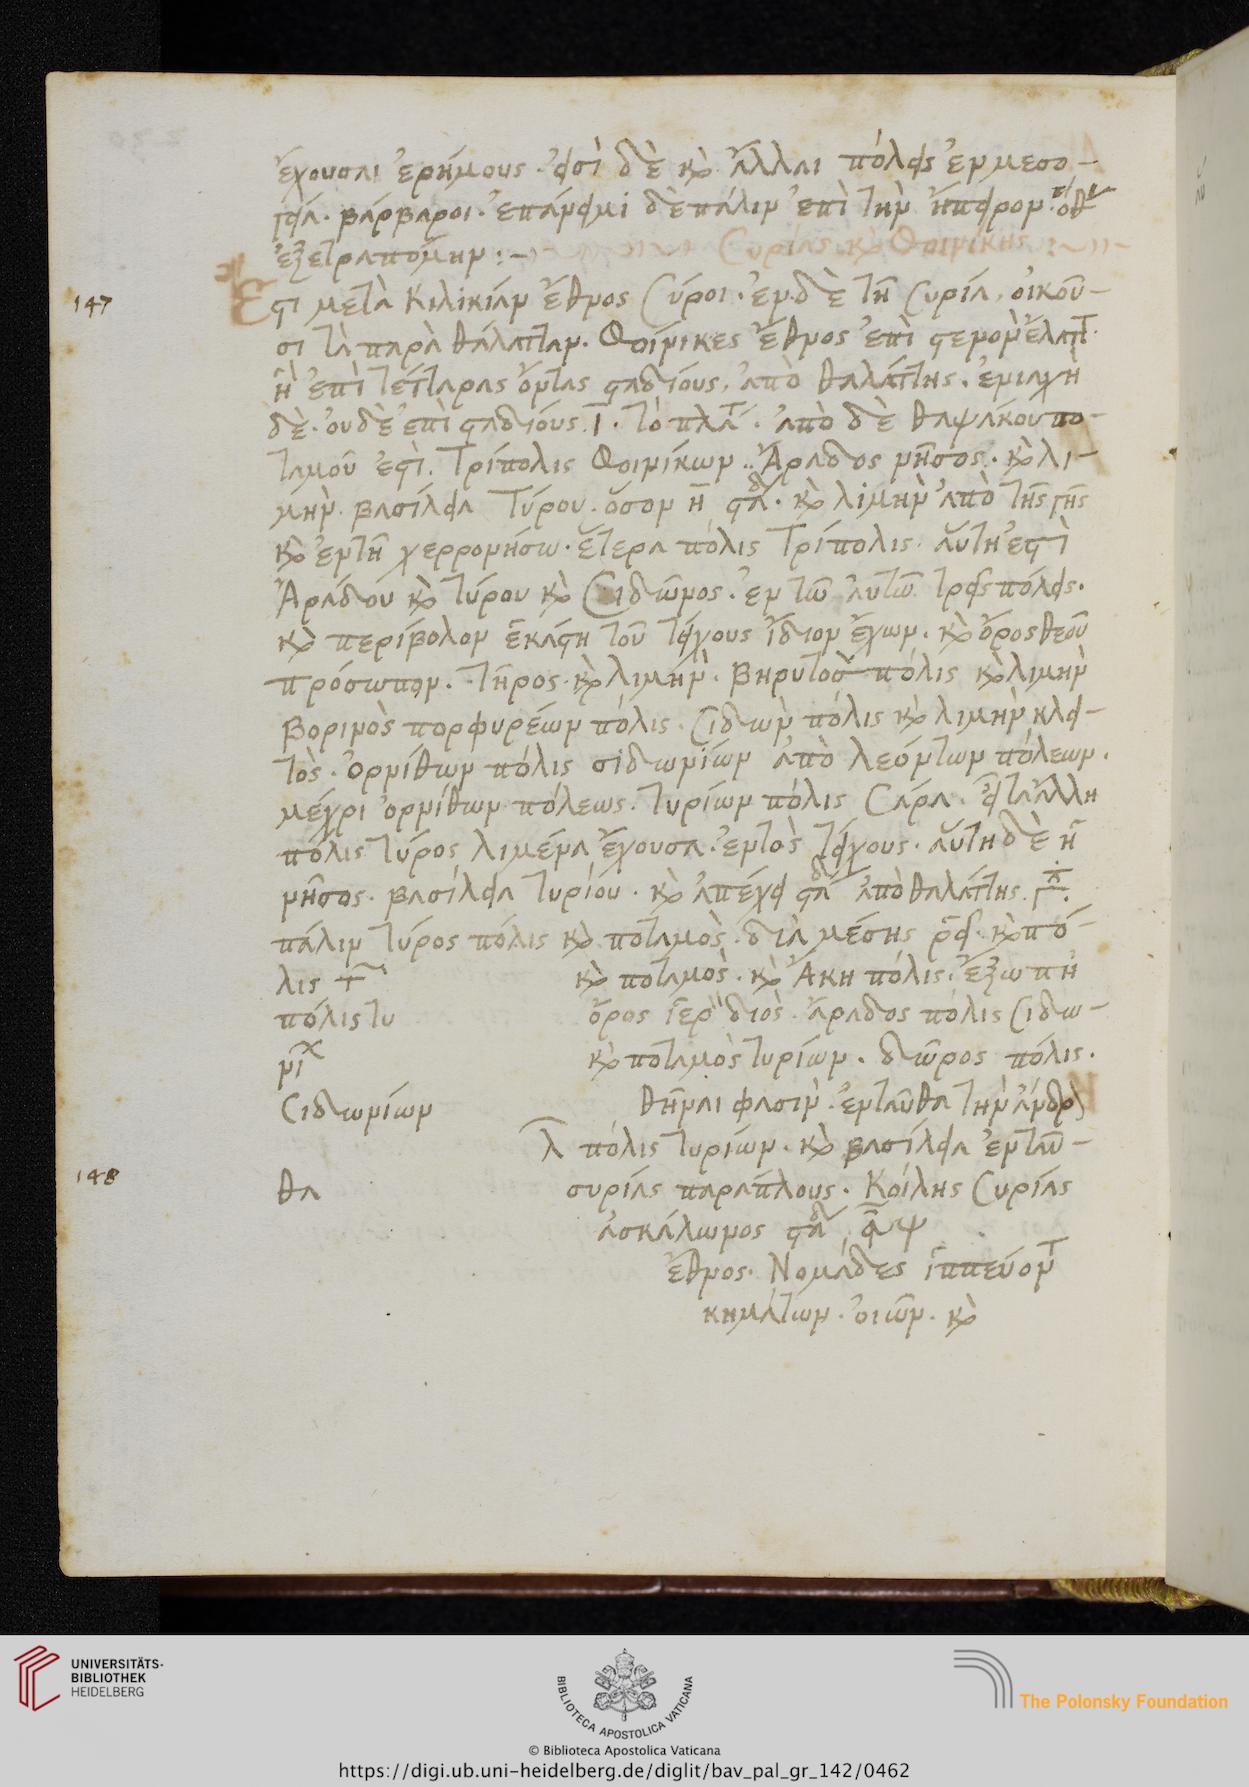 ἔχουσαι ἐρήμους· εἰσὶ δὲ κὶ ἄλλαι πόλεις ἐν μεσο-
γεία· βάρβαροι· ἐπάνειμι δὲ πάλιν ἐπὶ τὴν ἤπειρον· ὅθεν
ἐξετραπόμην :-
Συρίας κὶ Φοινίκης :~
147
Ἔστι μετὰ Κιλικίαν ἔθνος Σύροι· ἐν δὲ τῆ Συρία, οἰκοῦ-
σι τὰ παρὰ θάλατταν· Φοίνικες ἔθνος ἐπὶ στενὸν ἔλαττ
ἢ ἐπὶ τέτταρας ὄντας σταδίους, ἀπὸ θαλάττης. ἐνιαχῆ
δὲ· οὐδὲ ἐπὶ σταδίους ῑ· τὸ πλατ· ἀπὸ δὲ θαψάκου πο-
ταμοῦ ἐστὶ. Τρίπολις Φοινίκων. Ἄραδος νῆσος· κὶ λι-
μὴν. βασίλεια Τύρου· ὅσον η̄ στάδ· κὶ λιμὴν ἀπὸ τῆς γῆς
κὶ ἐν τῆ χερρονήσω· ἑτέρα πόλις Τρίπολις· αὕτη ἐστὶ
Ἀράδου κὶ τύρου κὶ Σιδῶνος· ἐν τῶ αὐτῶ τρεῖς πόλεις·
κὶ περίβολον ἑκάστη τοῦ τείχους ἴδιον ἔχων. κὶ ὄρος θεοῦ
πρόσωπον. τῆρος· κὶ λιμήν. Βηρυτὸσ πόλις κὶ λιμὴν
Βορινὸς πορφυρέων πόλις. Σιδὼν πόλις κὶ λιμὴν κλει-
τὸς· Ὀρνίθων πόλις σιδωνίων ἀπὸ λεόντων πόλεων.
μέχρι ὀρνίθων πόλεως. τυρίων πόλις Σάρα. εἶτα ἄλλη
πόλις τύρος λιμένα ἔχουσα ἐντὸς τείχους· αὕτη δὲ ἡ
νῆσος· βασίλεια τυρίου· κὶ ἀπέχει στάδ ἀπὸ θαλάττης. γ̄.
πάλιν τύρος πόλις κὶ ποταμὸς. διὰ μέσης ῥεῖ· κὶ πό-
λις τ κὶ ποταμὸς· κὶ Ἄκη πόλις· ἔξω πη
πόλις τυ ὄρος ἱερὸ διὸς· ἄραδος πόλις Σιδω-
νί κὶ ποταμὸς τυρίων. δῶρος πόλις.
Σιδωνίων θῆναι φασὶν· ἐνταῦθα τὴν ἀνδρ
λ πόλις τυρίων. κὶ βασίλεια ἐνταῦ-
148
θα συρίας παράπλους. Κοίλης Συρίας
ἀσκάλωνος στάδ ͵αψ
ἔθνος· Νομάδες ἱππεύοντ
κημάτων· οἰῶν· κὶ
UNIVERSITÄTS-
BIBLIOTHEK
HEIDELBERG
BIBLIOTECA APOSTOLICA VATICANA
The Polonsky Foundation
© Biblioteca Apostolica Vaticana
https://digi.ub.uni-heidelberg.de/diglit/bav_pal_gr_142/0462